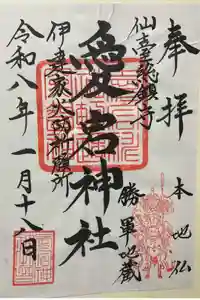 奉拝
本地仏
勝軍地蔵
愛宕神社
伊達家火防祈願所
令和八年一月十八日